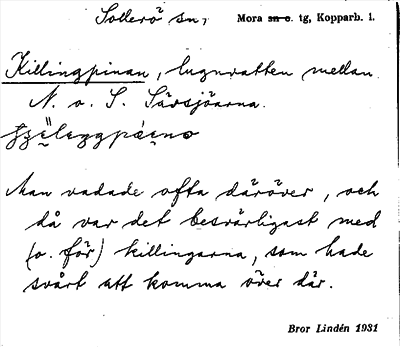 Sollerö sn, Mora sn o. tg, Kopparb. l.
Killingpinan, lugnvatten mellan
N. o. S. Särsjöarna.
Man vadade ofta däröver, och
då var det besvärligast med
(o. för) killingarna, som hade
svårt att komma över där.
Bror Lindén 1931